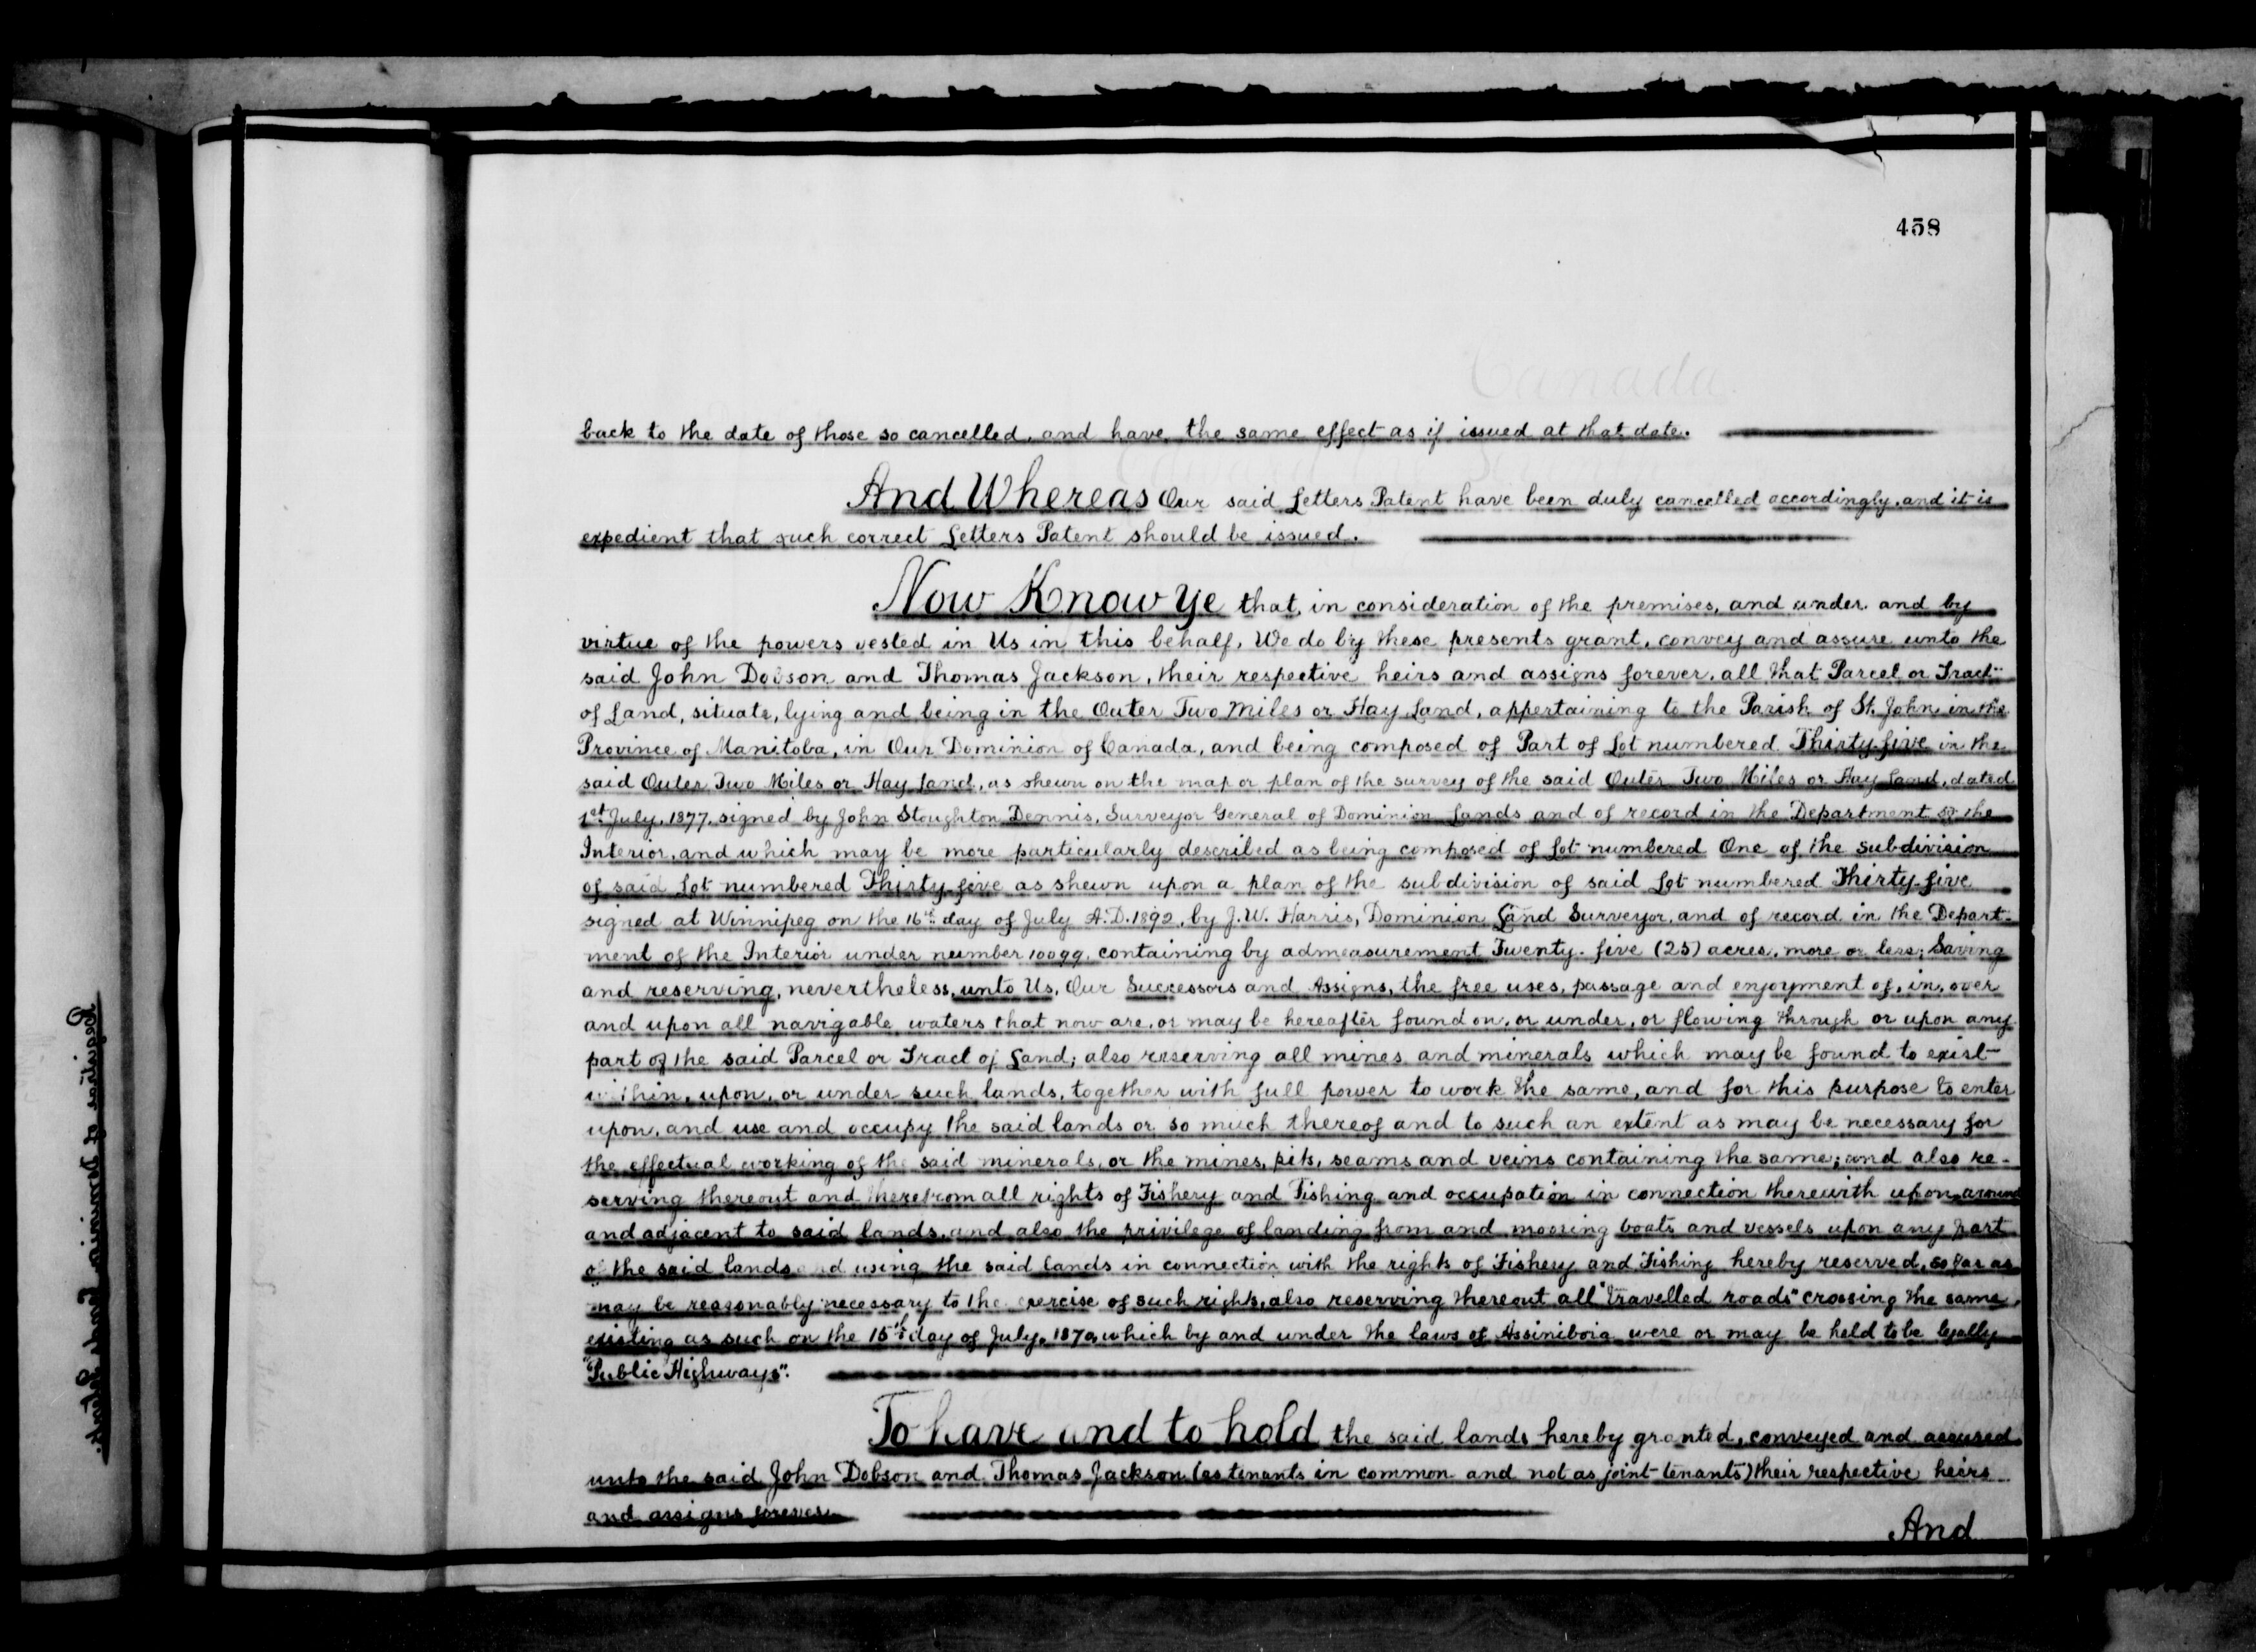 458
back to the date of those so cancelled, and have the same effect as if issued at that date.
And Whereas Our said Letters Patent have been duly cancelled accordingly, and it is
expedient that such correct Letters Patent should be issued.
Now Know Ye that, in consideration of the premises, and under and by
virtue of the powers vested in Us in this behalf, We do by these presents grant, convey and assure unto the
said John Dobson and Thomas Jackson, their respective heirs and assigns forever, all that Parcel or Tract
of Land, situate, lying and being in the Outer Two Miles or Hay Land, appertaining to the Parish of St. John in the
Province of Manitoba, in Our Dominion of Canada, and being composed of Part of Lot numbered Thirty-five in the
said Outer Two Miles or Hay Land, as shewn on the map or plan of the survey of the said Outer Two Miles or Hay Land, dated
1st July, 1877, signed by John Stoughton Dennis, Surveyor General of Dominion Lands and of record in the Department of the
Interior, and which may be more particularly described as being composed of Lot numbered One of the subdivision
of said Lot numbered Thirty-five as shewn upon a plan of the subdivision of said Lot numbered Thirty-five
signed at Winnipeg on the 16th day of July A.D. 1892, by J. W. Harris, Dominion Land Surveyor, and of record in the Depart-
ment of the Interior under number 10099, containing by admeasurement Twenty-five (25) acres, more or less; Saving
and reserving, nevertheless, unto Us, Our Successors and Assigns, the free uses, passage and enjoyment of, in, over
and upon all navigable waters that now are, or may be hereafter found on, or under, or flowing through or upon any
part of the said Parcel or Tract of Land; also reserving all mines and minerals which may be found to exist
within, upon, or under such lands, together with full power to work the same, and for this purpose to enter
upon, and use and occupy the said lands or so much thereof and to such an extent as may be necessary for
the effectual working of the said minerals, or the mines, pits, seams and veins containing the same; and also re-
serving thereout and therefrom all rights of Fishery and Fishing and occupation in connection therewith upon, around
and adjacent to said lands, and also the privilege of landing from and mooring boats and vessels upon any part
of the said lands and using the said lands in connection with the rights of Fishery and Fishing hereby reserved, so far as
may be reasonably necessary to the exercise of such rights, also reserving thereout all "travelled roads" crossing the same,
existing as such on the 15th day of July, 1870, which by and under the laws of Assiniboia were or may be held to be legally
"Public Highways".
To have and to hold the said lands hereby granted, conveyed and assured
unto the said John Dobson and Thomas Jackson (as tenants in common and not as joint-tenants) their respective heirs
and assigns forever.
And